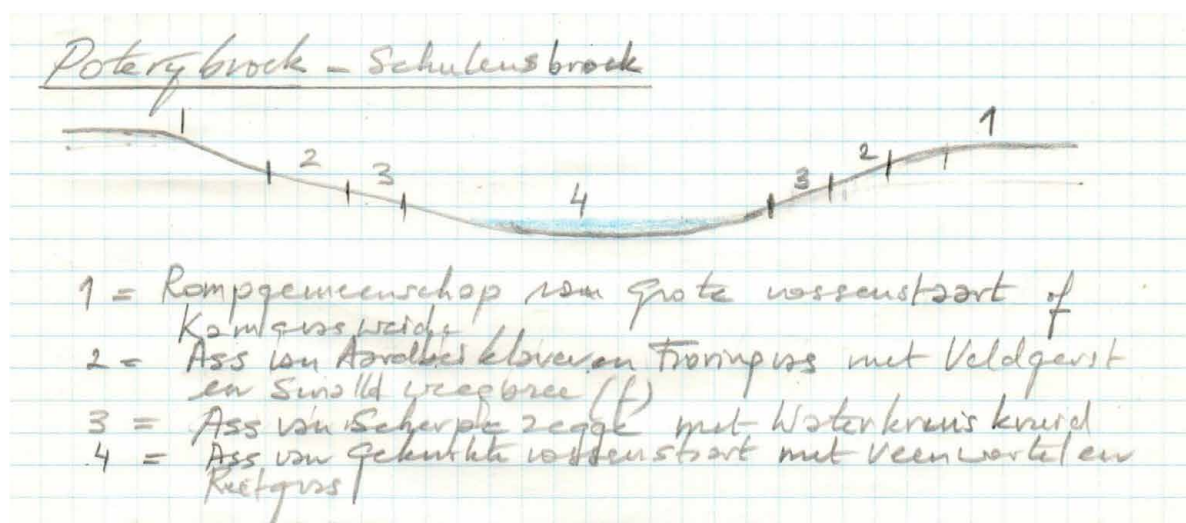 Poterybroek - Schulensbroek
1
1
2
2
3
3
4
1 = Rompgemeenschap van Grote vossenstaart of
Kamgrasweide
2 = Ass van Aardbeiklaver en Fioringras met Veldgerst
en Smalle weegbree (f)
3 = Ass van Scherpe zegge met Waterkruiskruid
4 = Ass van Geknikte vossenstaart met Veenwortel en
Rietgras